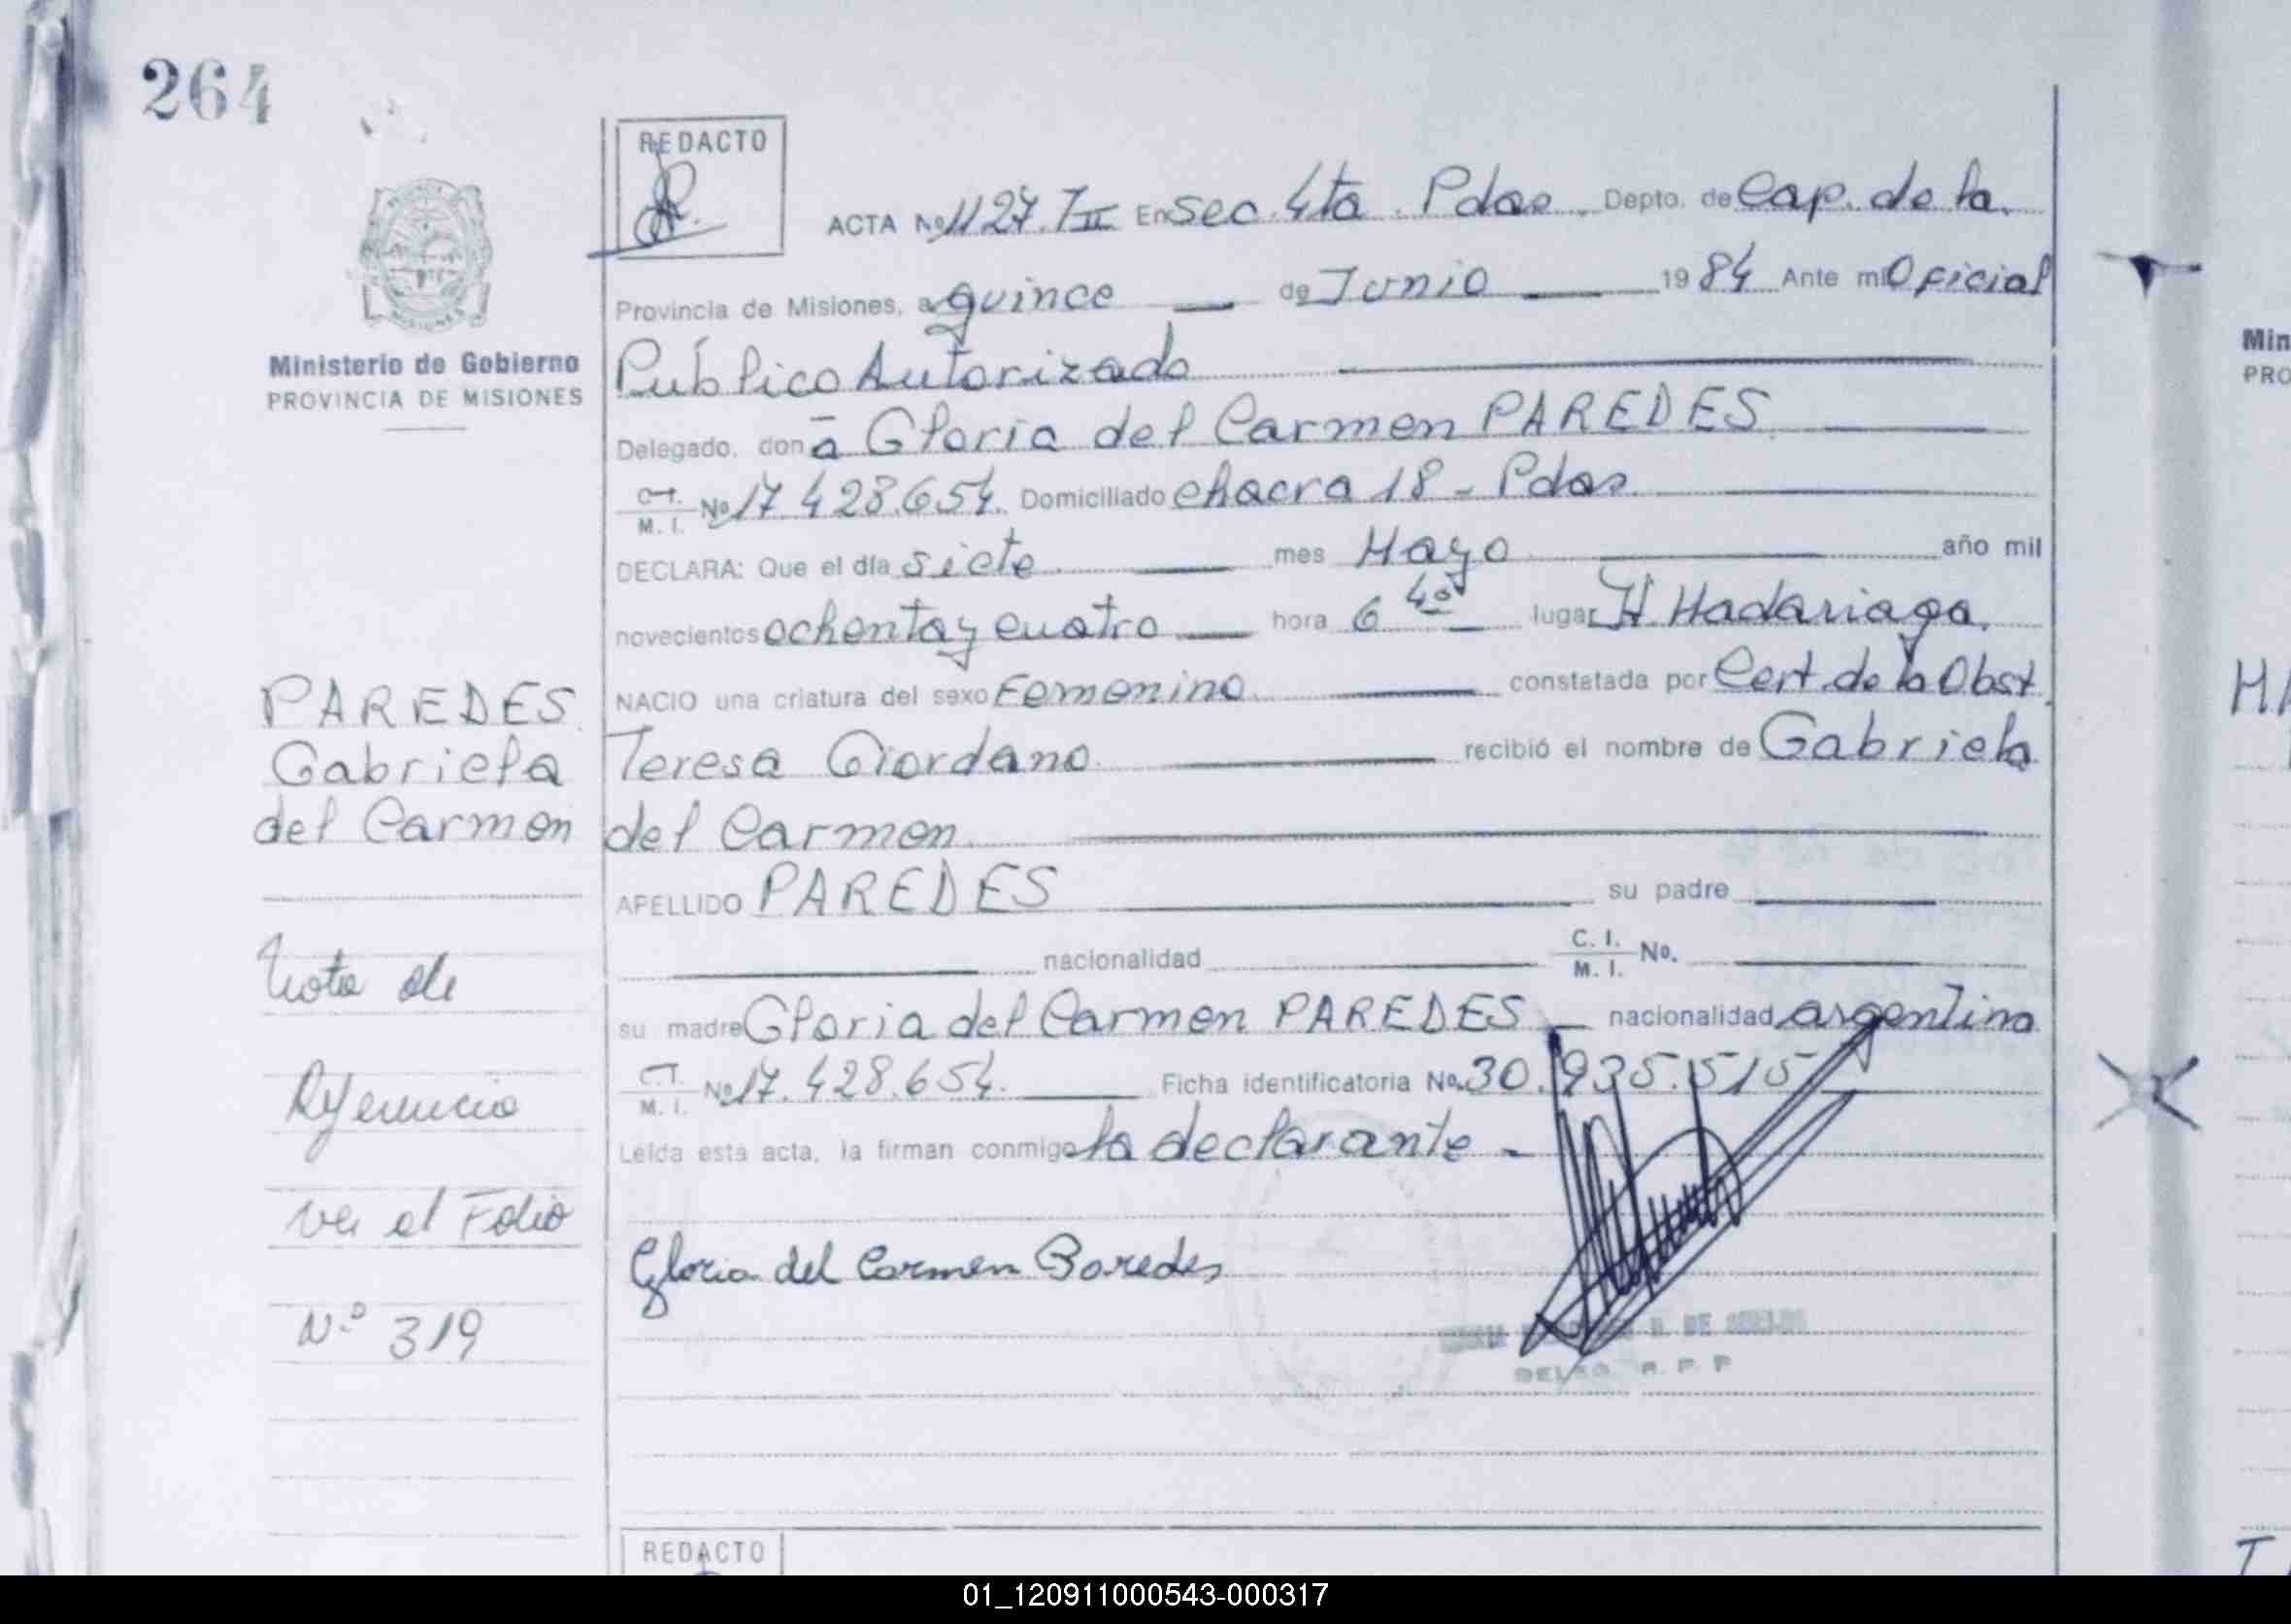 264
REDACTO
ACTA Nº 1127. TIII En Sec. 4ta. Pdas. Depto. de Cap. de la
Provincia de Misiones, a quince de Junio 1984 Ante mi Oficial
Público Autorizado
Ministerio de Gobierno
PROVINCIA DE MISIONES
Delegado, don a Gloria del Carmen PAREDES
C.I. M. I. Nº 17.428.654. Domiciliado chacra 18 - Pdas.
DECLARA: Que el día siete mes Mayo año mil
novecientos ochenta y cuatro hora 6 40 lugar H. Madariaga.
NACIO una criatura del sexo Femenino constatada por Cert. de la Obst.
Teresa Giordano recibió el nombre de Gabriela
del Carmen
APELLIDO PAREDES su padre
nacionalidad C. I. M. I. No.
su madre Gloria del Carmen PAREDES nacionalidad argentina
C.I. M. I. Nº 17.428.654. Ficha identificatoria No. 30.935.515
Leída esta acta, la firman conmigo la declarante -
Gloria del Carmen Paredes
DE
R. P. P
PAREDES
Gabriela
del Carmen
Nota de
Referencia
ver al Folio
N.º 319
REDACTO
Min
PRO
01_120911000543-000317